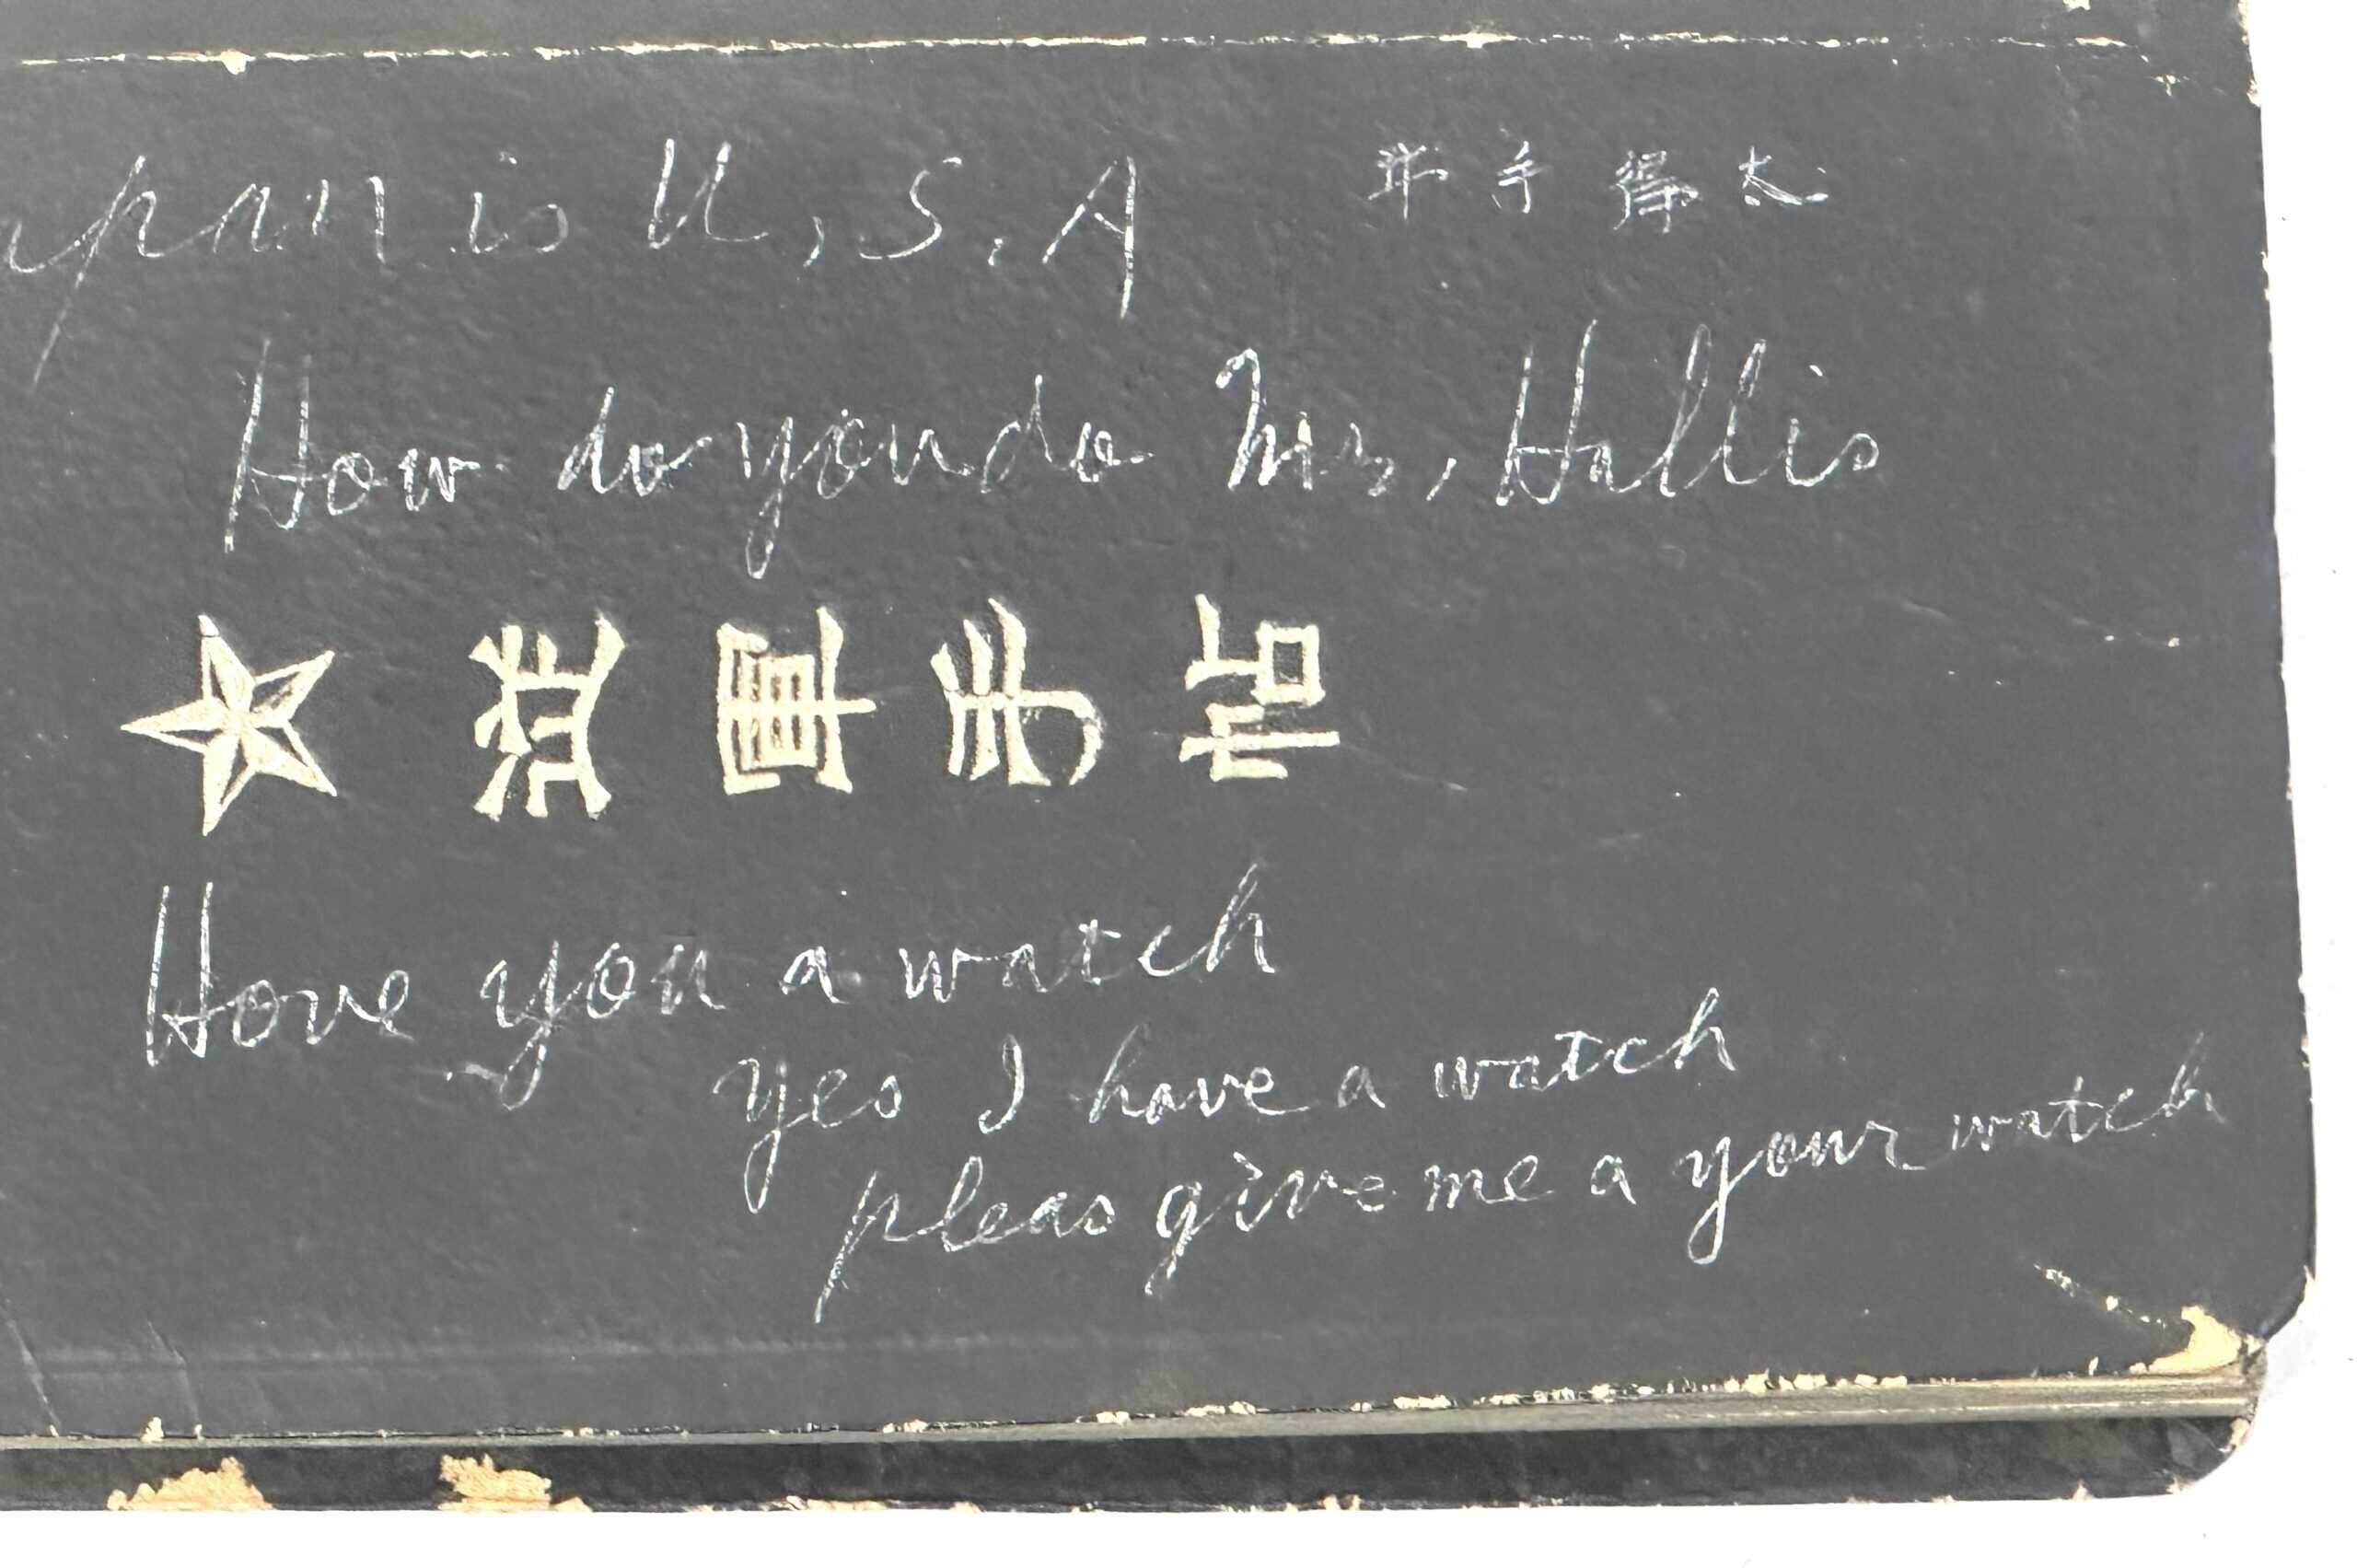 apan is U, S, A
How do you do Mr, Hallis
従軍手帖
Hove you a watch
yes I have a watch
pleas give me a your watch